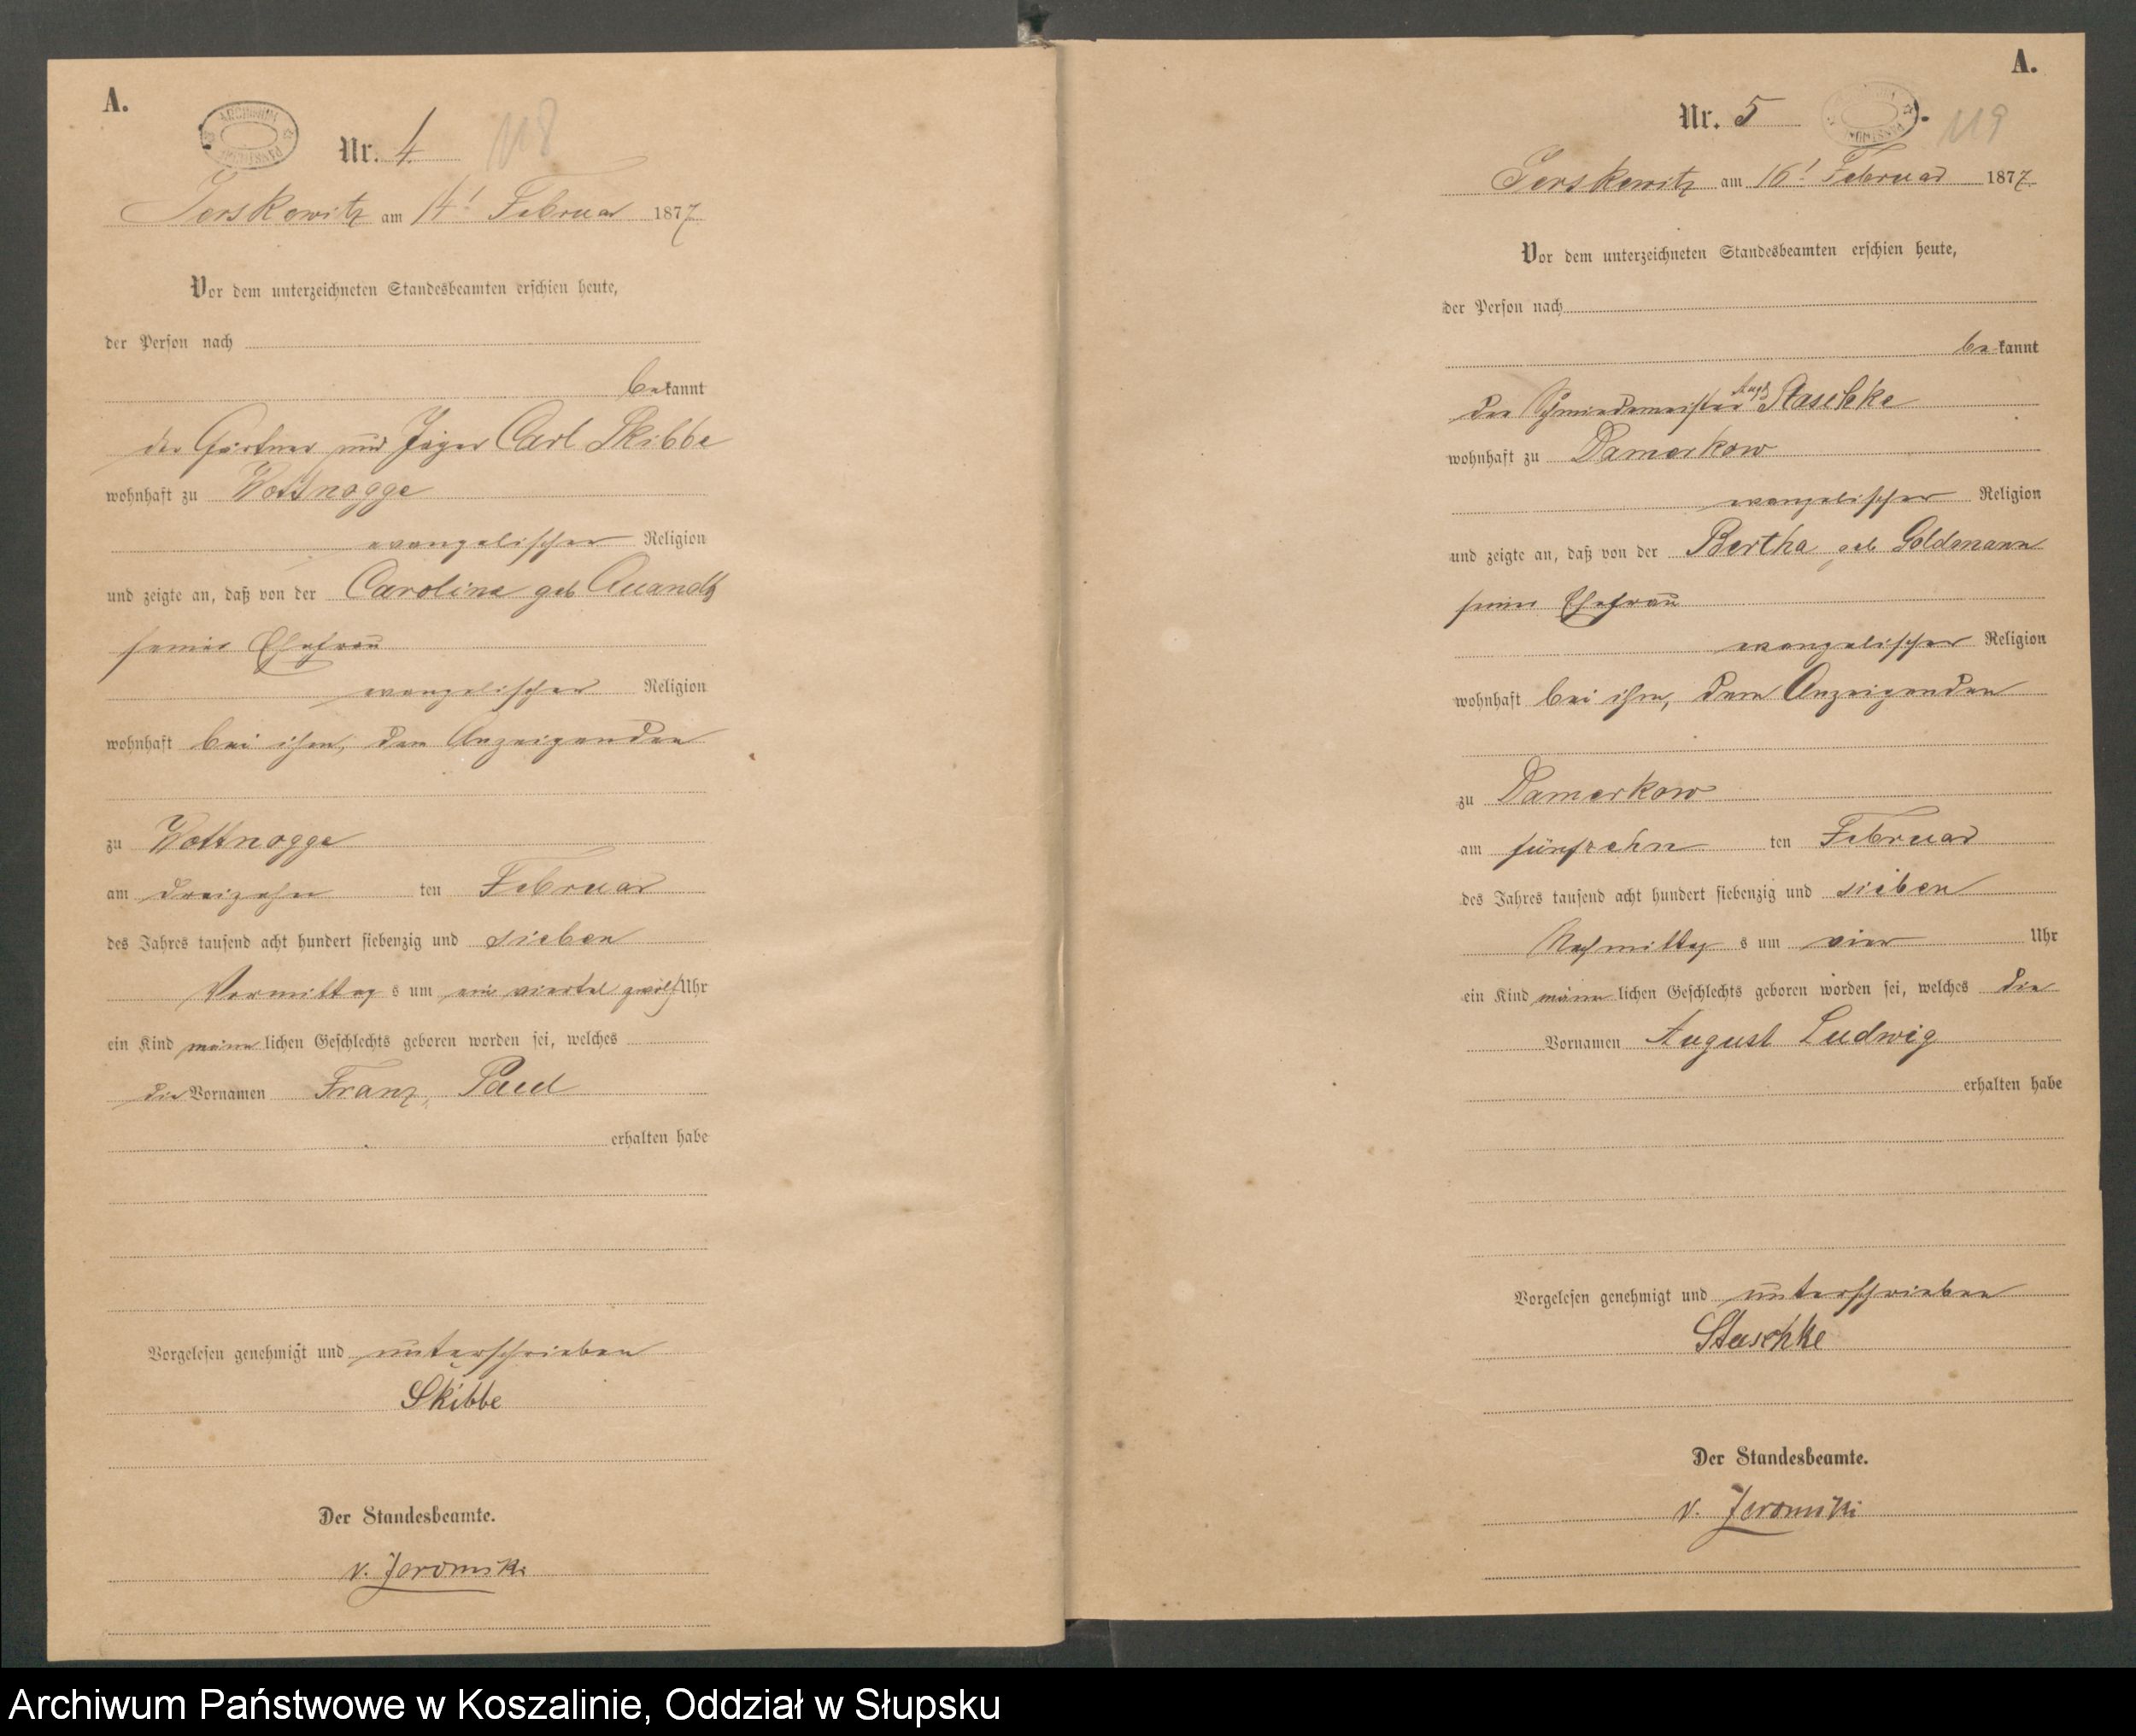 A.
ARCHIWUM PAŃSTWOWE
Nr. 4.
118
Jerskewitz am 14t Februar 1877.
Vor dem unterzeichneten Standesbeamten erschien heute,
der Person nach
bekannt
der Gärtner und Jäger Carl Skibbe
wohnhaft zu Wottnogge
evangelischer Religion
und zeigte an, daß von der Caroline geb Quandt
seiner Ehefrau
evangelischer Religion
wohnhaft bei ihm, dem Anzeigenden
zu Wottnogge
am dreizehn ten Februar
des Jahres tausend acht hundert siebenzig und sieben
Vormittag s um ein viertel zwölf Uhr
ein Kind männlichen Geschlechts geboren worden sei, welches
die Vornamen Franz, Paul
erhalten habe
Vorgelesen genehmigt und unterschrieben
Skibbe
Der Standesbeamte.
v. Jeromski
A.
Nr. 5
119
Jerskewitz am 16t Februar 1877.
Vor dem unterzeichneten Standesbeamten erschien heute,
der Person nach
bekannt
der Schmiedemeister Augt Staschke
wohnhaft zu Damerkow
evangelischer Religion
und zeigte an, daß von der Bertha geb Goldmann
seiner Ehefrau
evangelischer Religion
wohnhaft bei ihm, dem Anzeigenden
zu Damerkow
am fünfzehn ten Februar
des Jahres tausend acht hundert siebenzig und sieben
Nachmittag s um vier Uhr
ein Kind männlichen Geschlechts geboren worden sei, welches die
Vornamen August Ludwig
erhalten habe
Vorgelesen genehmigt und unterschrieben
Staschke
Der Standesbeamte.
v. Jeromski
Archiwum Państwowe w Koszalinie, Oddział w Słupsku